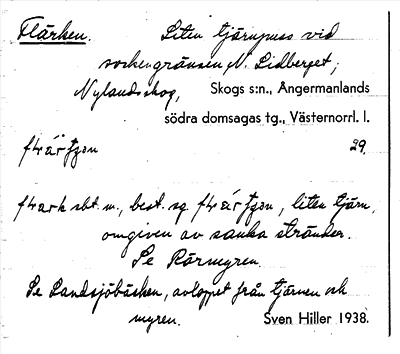 Flärken. Liten tjärnpuss vid
sockengränsen N. Lidberget;
Nylandsskog, Skogs s:n., Ångermanlands
södra domsagas tg., Västernorrl. l.
29.
flark sbt. m., best. sg. liten tjärn,
omgiven av sanka stränder.
Se Rörmyren.
Se Landsjöbäcken, avloppet från tjärnen och
myren. Sven Hiller 1938.